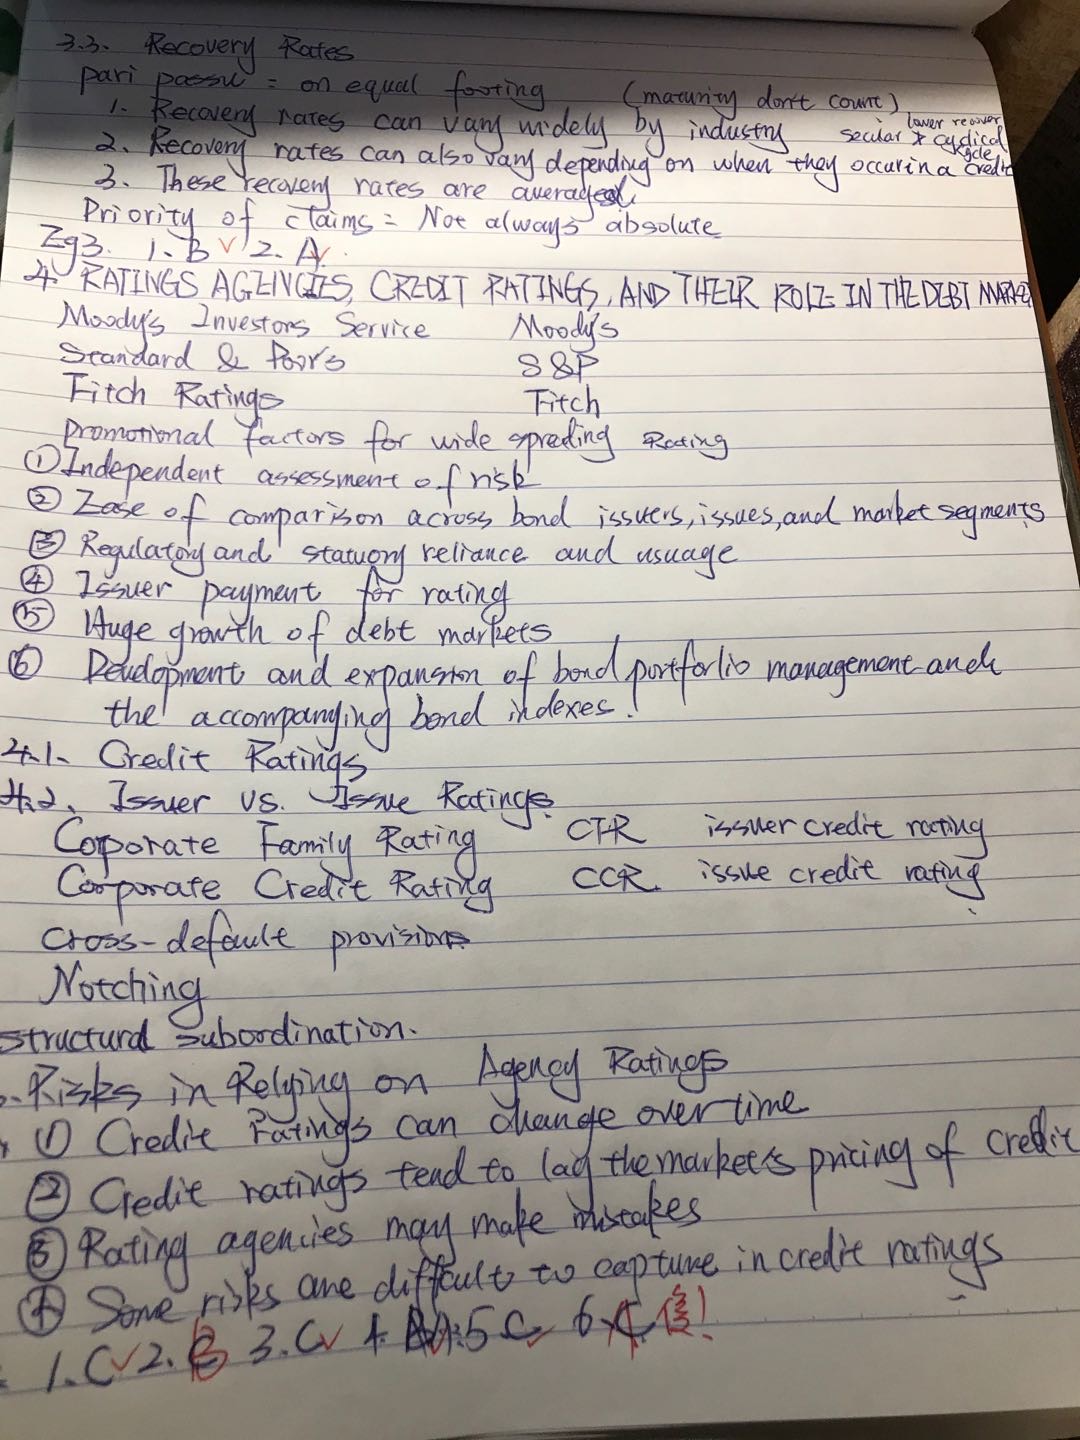 3.3. Recovery Rates
pari passu = on equal footing (maturity don't count)
1. Recovery rates can vary widely by industry secular & cyclical
lower recover
2. Recovery rates can also vary depending on when they occur in a credit
cycle
3. These recovery rates are averages.
Priority of claims = Not always absolute
Eg3. 1. B ✓ 2. A ✓
4. RATINGS AGENCIES, CREDIT RATINGS, AND THEIR ROLE IN THE DEBT MARKE
Moody's Investors Service Moody's
Standard & Poor's S&P
Fitch Ratings Fitch
promotional factors for wide spreding Rating
① Independent assessment of risk
② Ease of comparison across bond issuers, issues, and market segments
③ Regulatory and statuory reliance and usuage
④ Issuer payment for rating
⑤ Huge growth of debt markets
⑥ Development and expansion of bond portforlio management and
the accompanying bond indexes.
4.1. Credit Ratings
4.2. Issuer vs. Issue Ratings
Corporate Family Rating CFR issuer credit rating
Corporate Credit Rating CCR issue credit rating
cross-default provisions
Notching
structural subordination.
Risks in Relying on Agency Ratings
① Credit Ratings can change over time
② Credit ratings tend to lag the market's pricing of credit
③ Rating agencies may make mistakes
④ Some risks are difficult to capture in credit ratings
1. C ✓ 2. B 3. C ✓ 4. A 5 C ✓ 6. C